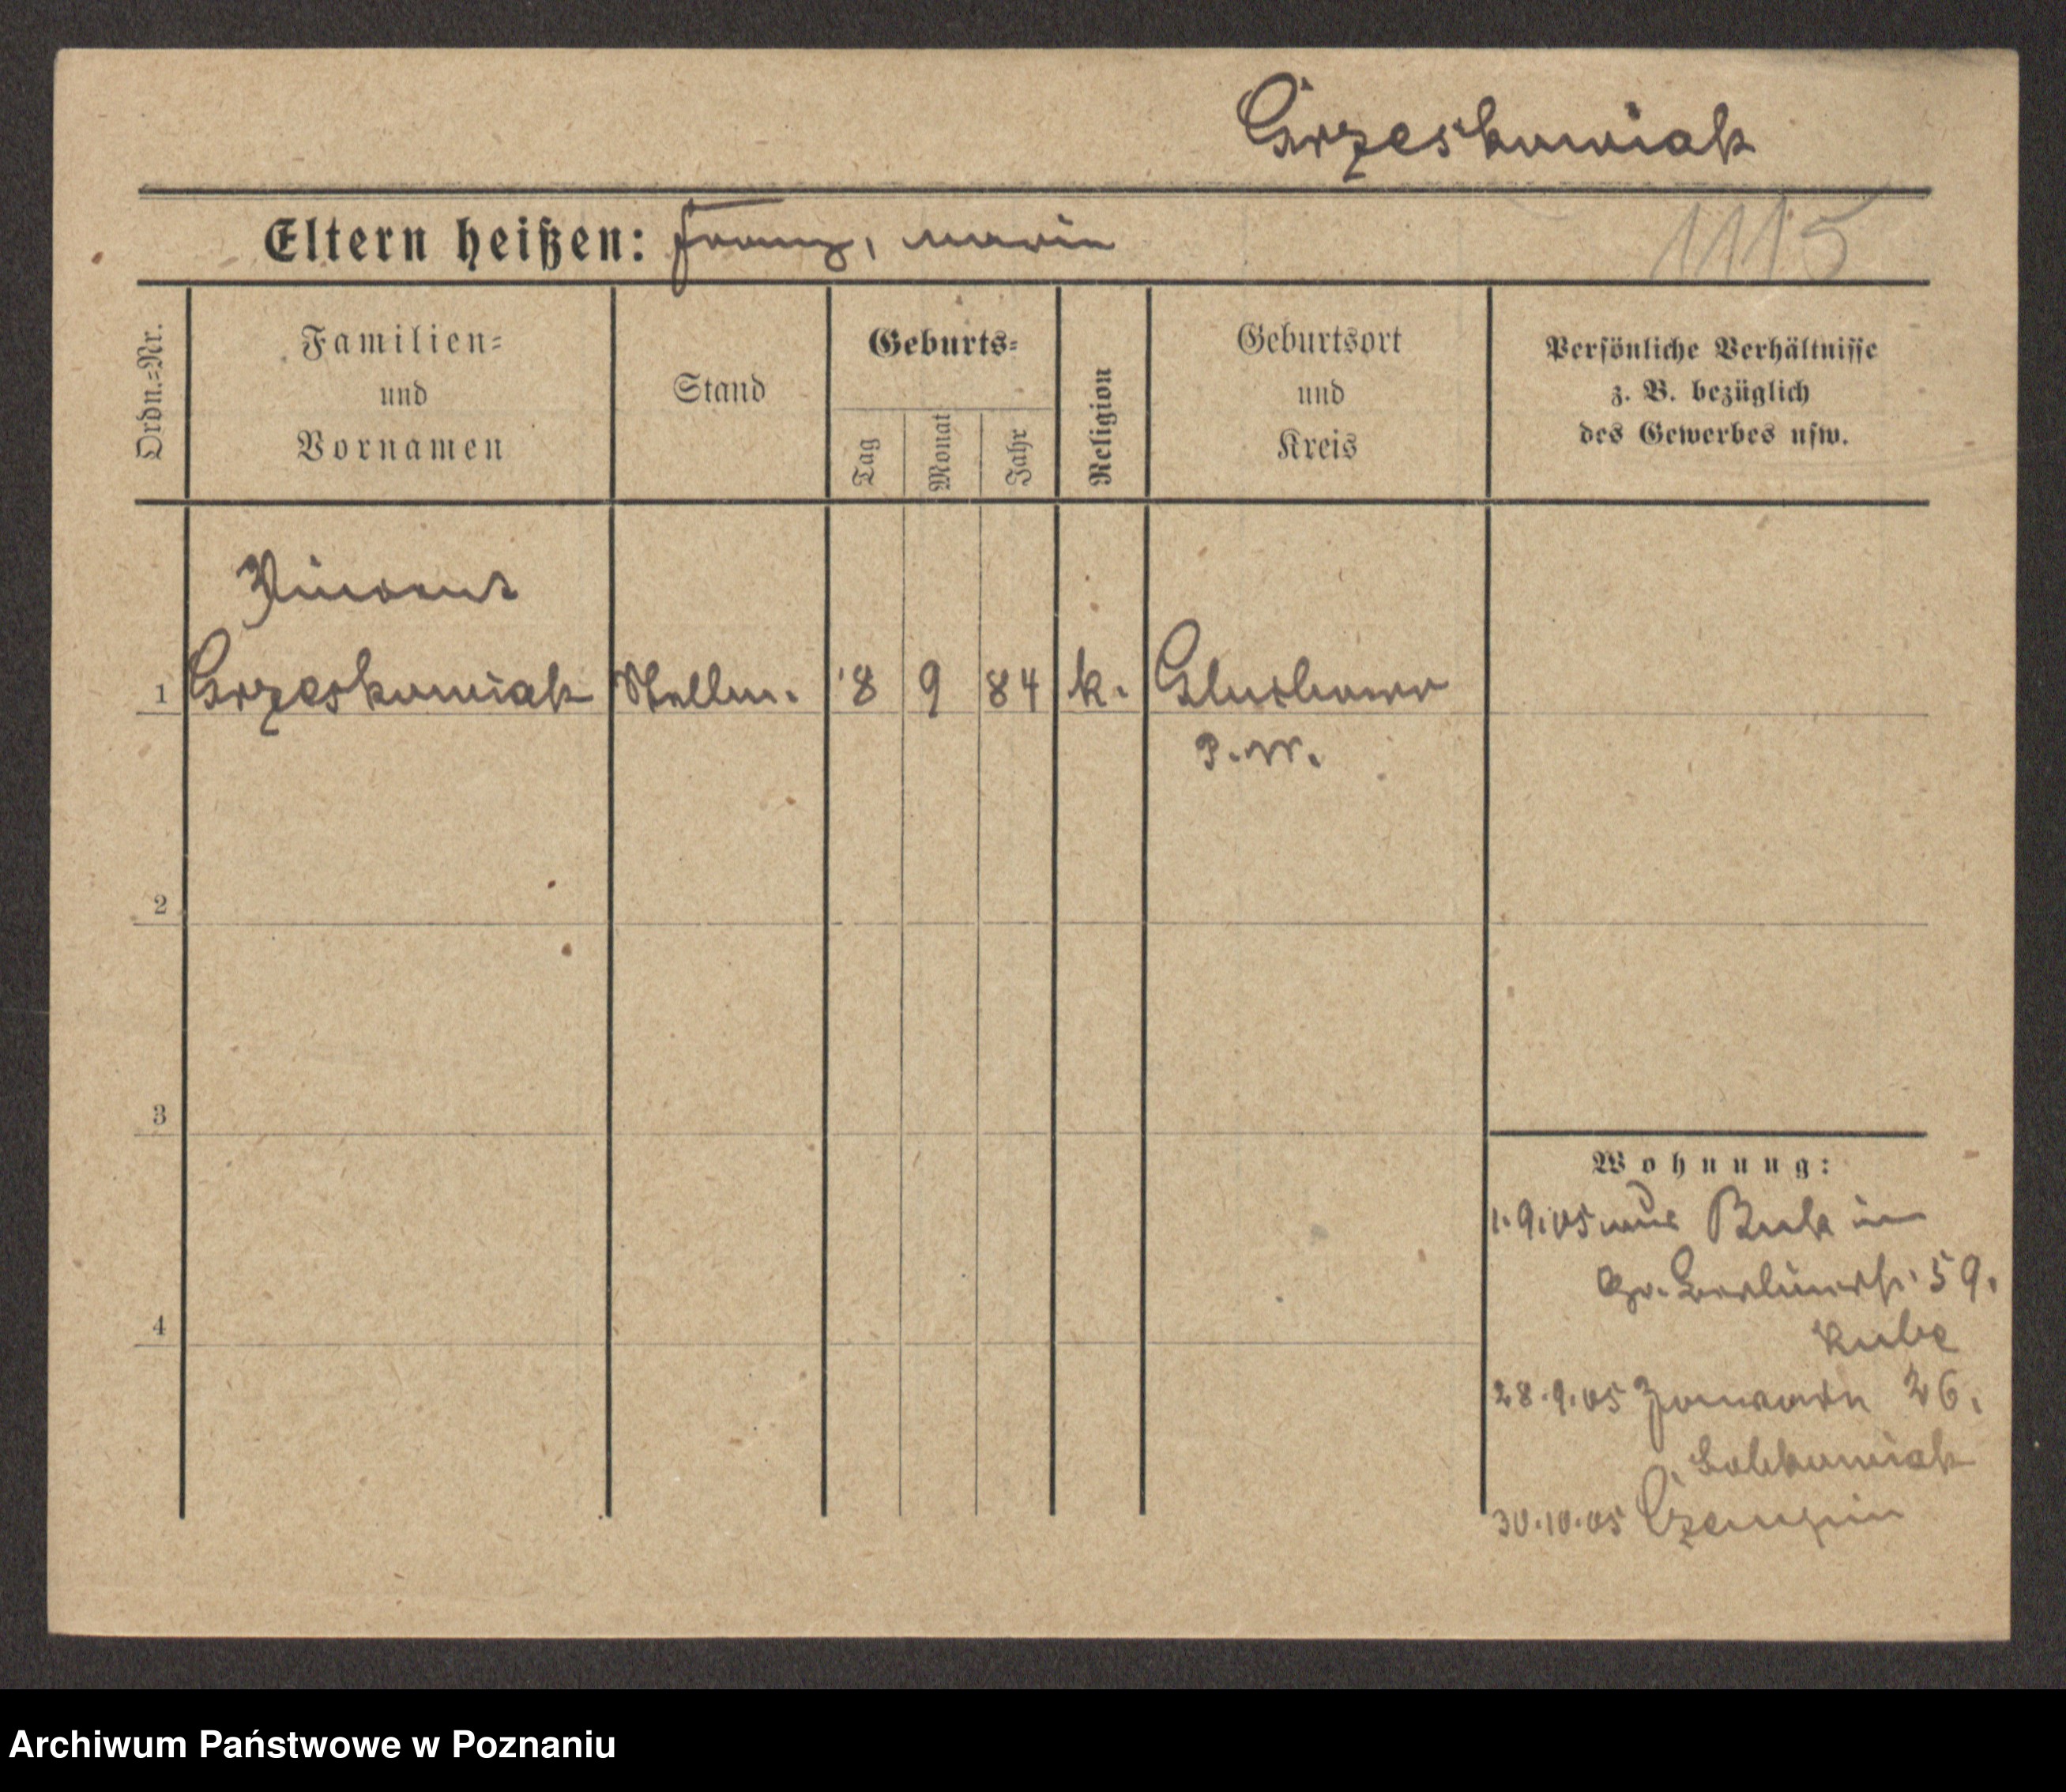 Grzeskowiak
Eltern heißen: Franz, Maria
1115
Ordn.=Nr.
Familien=
und
Vornamen
Stand
Geburts=
Tag
Monat
Jahr
Religion
Geburtsort
und
Kreis
Persönliche Verhältnisse
z. B. bezüglich
des Gewerbes usw.
Vincent
1 Grzeskowiak Stellm. 8 9 84 k. Gluchowo
P. W.
2
3
4
Wohnung:
1.9.05 aus Buk in
Gr. Berlinerstr. 59.
Kube
28.9.05 26.
30.10.05 Czempin
Archiwum Państwowe w Poznaniu